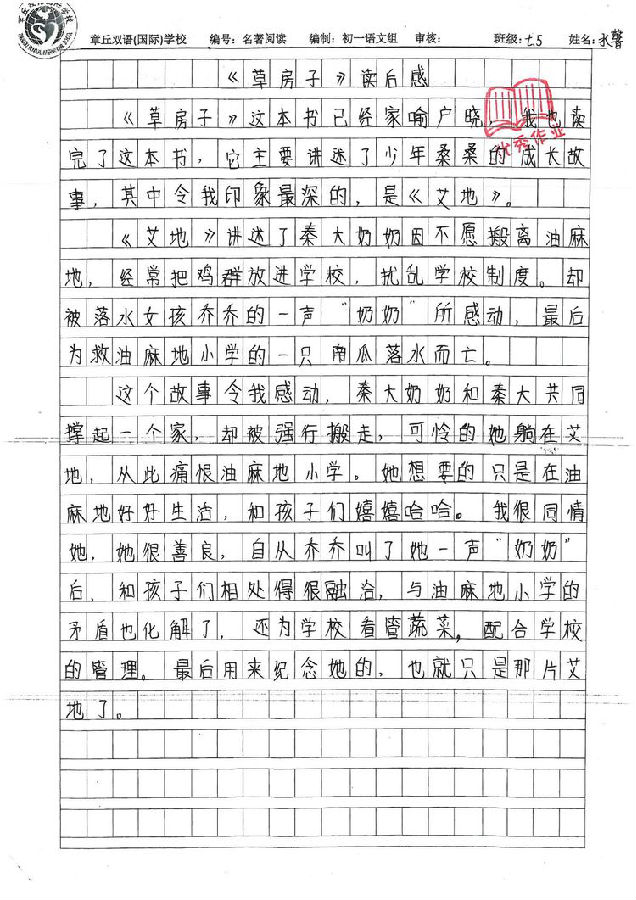 章丘双语(国际)学校 编号:名著阅读 编制:初一语文组 审核: 班级:七5 姓名:
《草房子》读后感
《草房子》这本书已经家喻户晓,我也读
优秀作业
完了这本书,它主要讲述了少年桑桑的成长故
事,其中令我印象最深的,是《艾地》。
《艾地》讲述了秦大奶奶因不愿搬离油麻
地,经常把鸡群放进学校,扰乱学校制度。却
被落水女孩乔乔的一声“奶奶”所感动,最后
为救油麻地小学的一只南瓜落水而亡。
这个故事令我感动,秦大奶奶和秦大共同
撑起一个家,却被强行搬走,可怜的她躺在艾
地,从此痛恨油麻地小学。她想要的只是在油
麻地好好生活,和孩子们嬉嬉哈哈。我很同情
她,她很善良,自从乔乔叫了她一声“奶奶”
后,和孩子们相处得很融洽,与油麻地小学的
矛盾也化解了,还为学校看管蔬菜,配合学校
的管理。最后用来纪念她的,也就只是那片艾
地了。